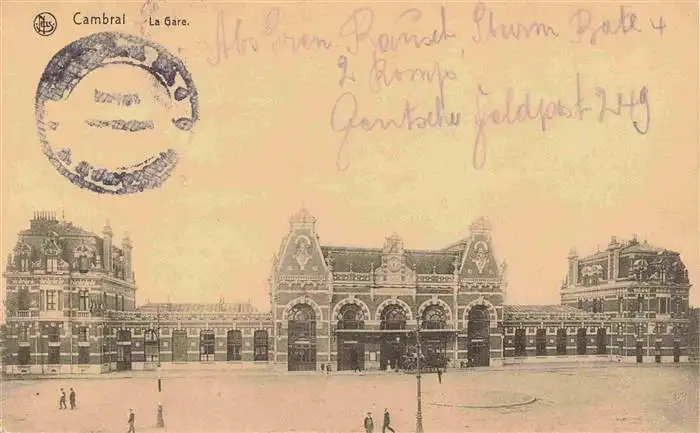 Cambrai La Gare.
Abs Gren. Rausch, Sturm Batl 4
2 Komp
Deutsche Feldpost 249